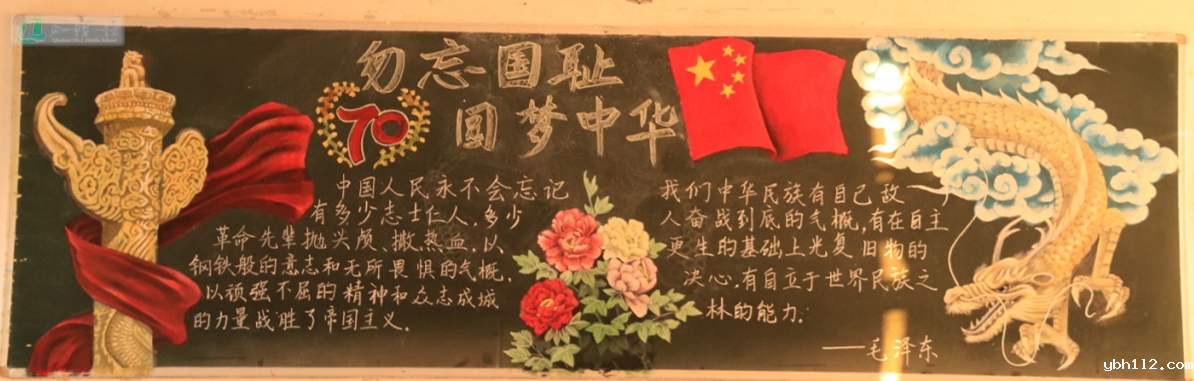 勿忘国耻
70
圆梦中华
中国人民永不会忘记
有多少志士仁人、多少
革命先辈抛头颅、撒热血，以
钢铁般的意志和无所畏惧的气概，
以顽强不屈的精神和众志成城
的力量战胜了帝国主义。
我们中华民族有自己敌
人奋战到底的气概，有在自主
更生的基础上光复旧物的
决心，有自立于世界民族之
林的能力。
——毛泽东
ybh112.com